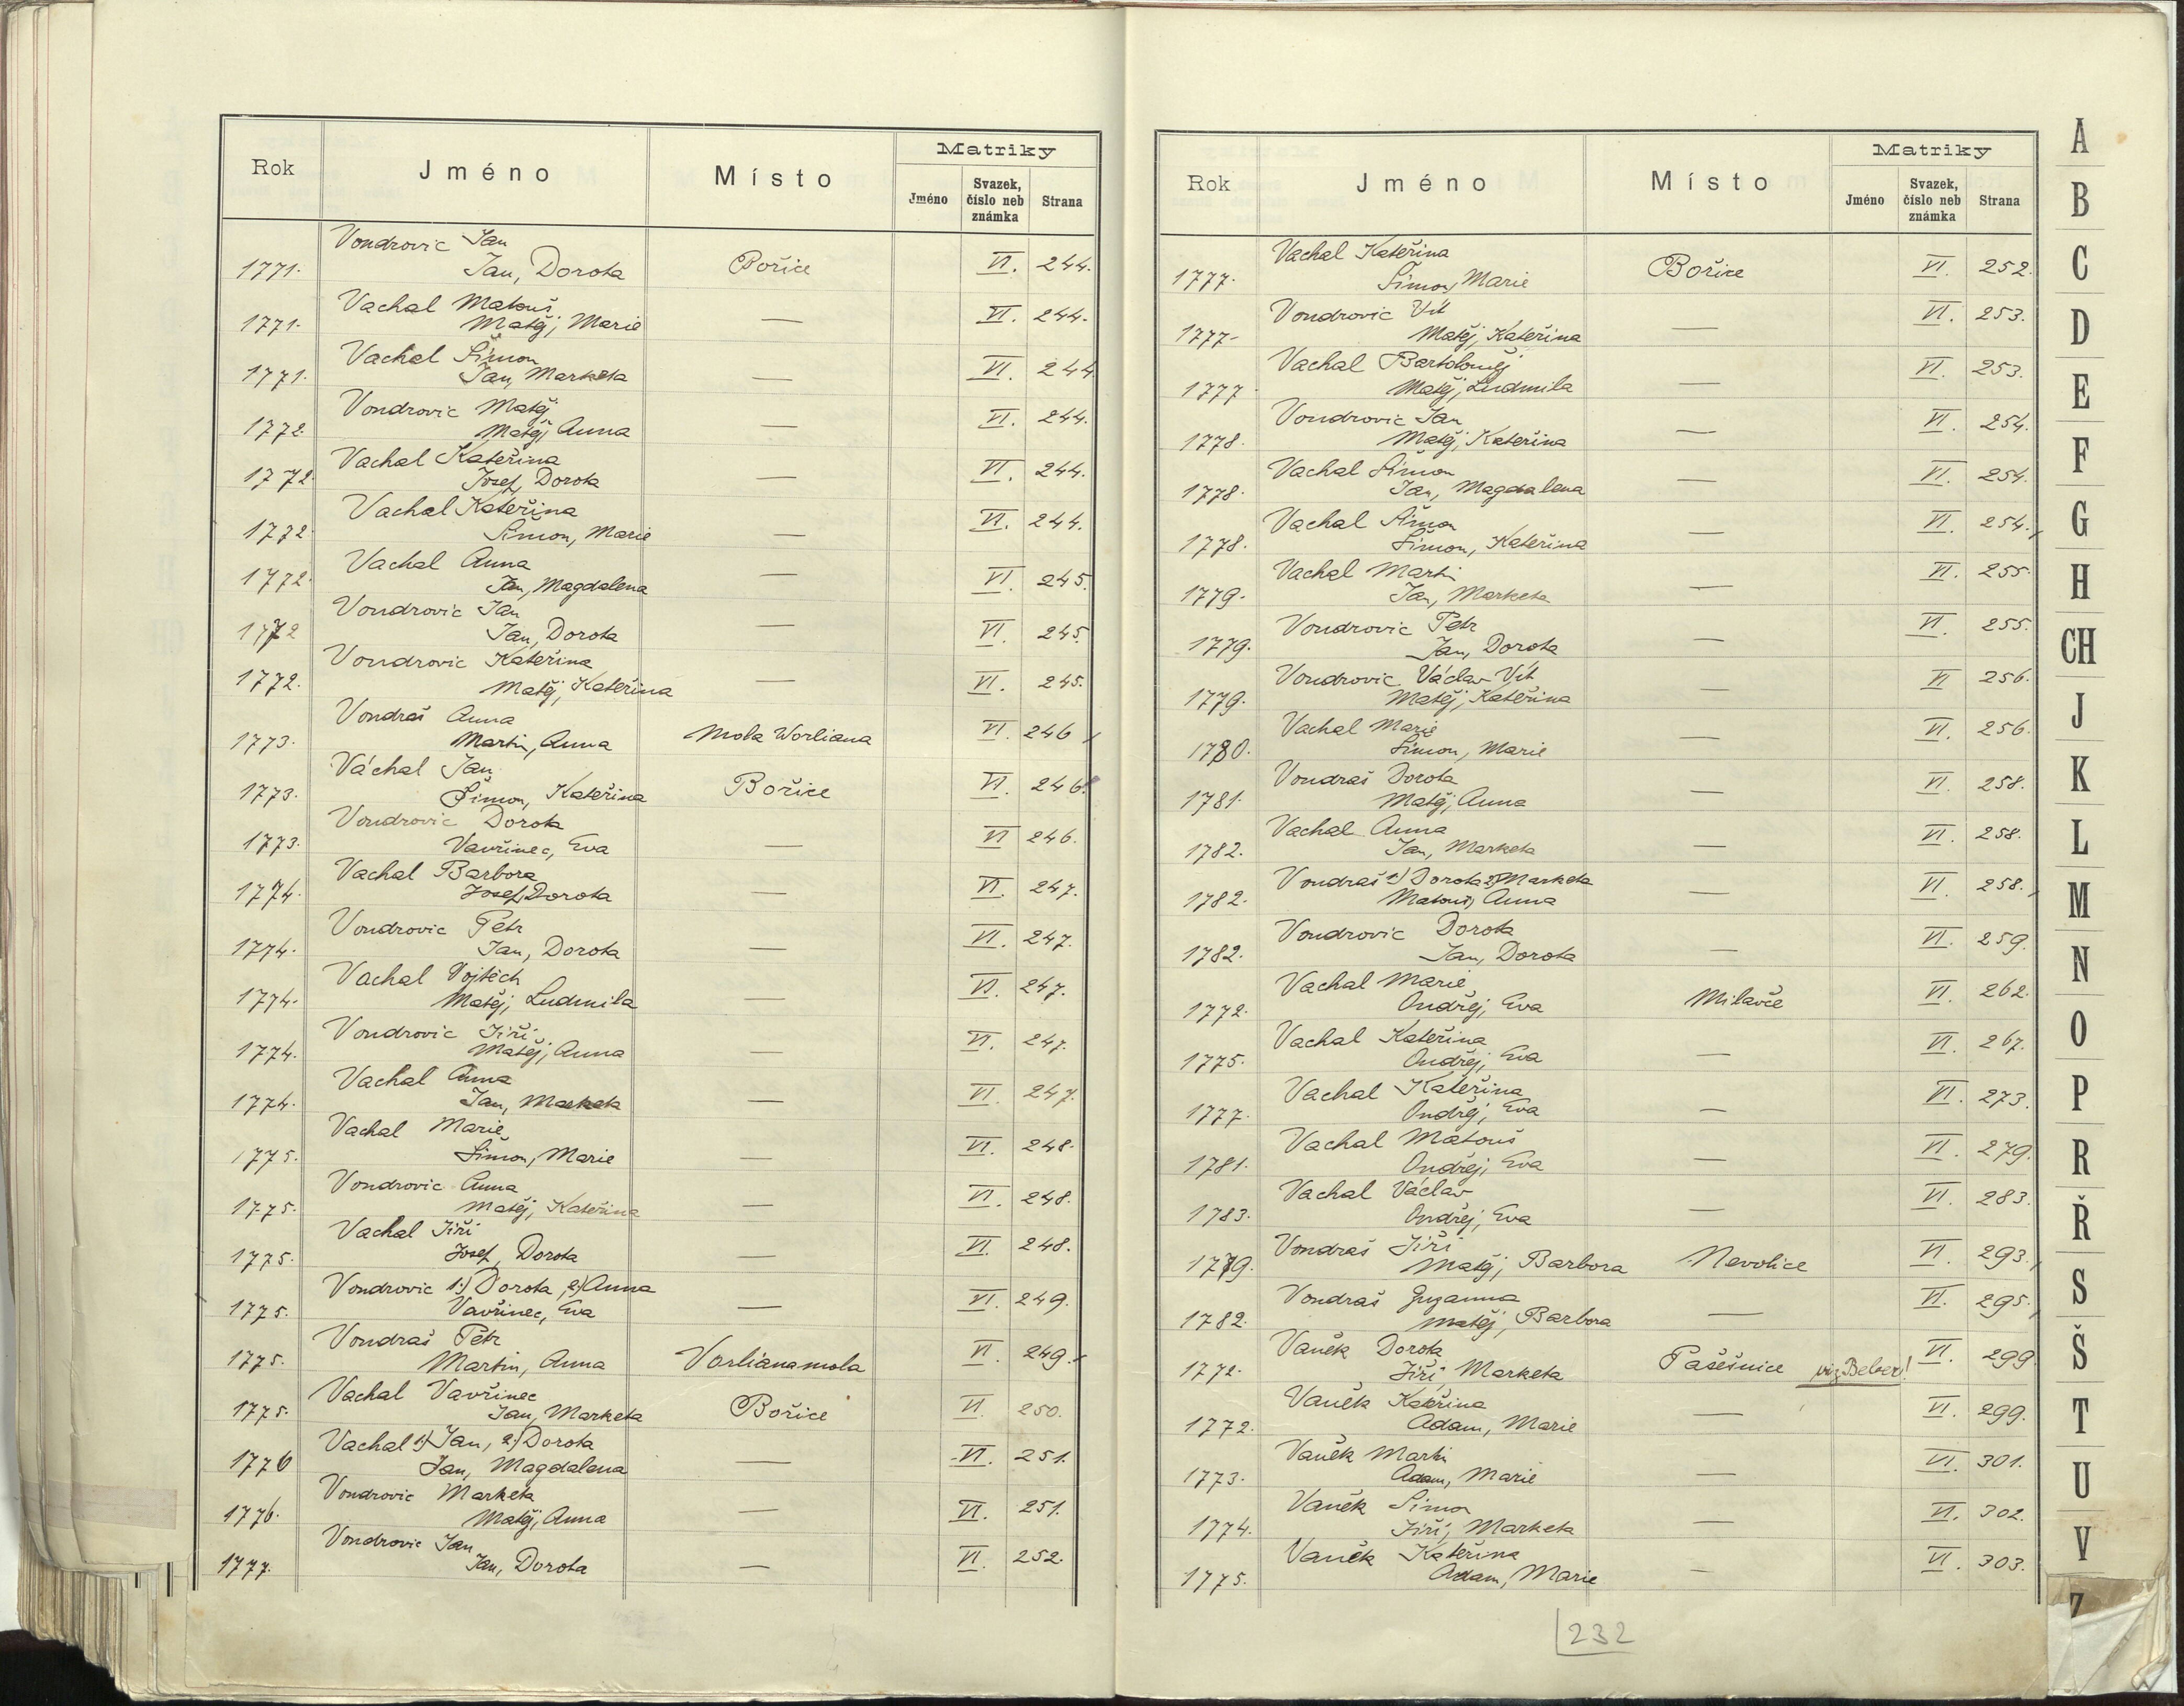 Rok Jméno Místo Matriky
Jméno Svazek, číslo neb známka Strana
Vondrovic Jan
1771. Jan, Dorota Bořice VI. 244.
Vachal Matouš
1771. Matěj, Marie — VI. 244.
Vachal Šimon
1771. Jan, Marketa — VI. 244.
Vondrovic Matěj
1772. Matěj, Anna — VI. 244.
Vachal Kateřina
1772. Josef, Dorota — VI. 244.
Vachal Kateřina
1772. Šimon, Marie — VI. 244.
Vachal Anna
1772. Jan, Magdalena — VI. 245.
Vondrovic Jan
1772 Jan, Dorota — VI. 245.
Vondrovic Kateřina
1772. Matěj, Kateřina — VI. 245.
Vondraš Anna
1773. Martin, Anna Mola Worliana VI. 246
Váchal Jan
1773. Šimon, Kateřina Bořice VI. 246.
Vondrovic Dorota
1773. Vavřinec, Eva — VI 246.
Vachal Barbora
1774. Josef, Dorota — VI. 247.
Vondrovic Petr
1774. Jan, Dorota — VI. 247.
Vachal Vojtěch
1774. Matěj, Ludmila — VI. 247.
Vondrovic Jiří
1774. Matěj, Anna — VI. 247.
Vachal Anna
1774. Jan, Marketa — VI. 247.
Vachal Marie
1775. Šimon, Marie — VI. 248.
Vondrovic Anna
1775. Matěj, Kateřina — VI. 248.
Vachal Jiří
1775. Josef, Dorota — VI. 248.
Vondrovic 1.) Dorota, 2.) Anna
1775. Vavřinec, Eva — VI. 249.
Vondraš Petr
1775. Martin, Anna Vorliana mola VI. 249.
Vachal Vavřinec
1775. Jan, Marketa Bořice VI. 250.
Vachal 1.) Jan, 2.) Dorota
1776 Jan, Magdalena — VI. 251.
Vondrovic Marketa
1776. Matěj, Anna — VI. 251.
Vondrovic Jan
1777. Jan, Dorota — VI. 252.
Rok Jméno Místo Matriky
Jméno Svazek, číslo neb známka Strana
Vachal Kateřina
1777. Šimon, Marie Bořice VI. 252.
Vondrovic Vít
1777- Matěj, Kateřina — VI. 253.
Vachal Bartoloměj
1777 Matěj, Ludmila — VI. 253.
Vondrovic Jan
1778. Matěj, Kateřina — VI. 254.
Vachal Šimon
1778. Jan, Magdalena — VI. 254.
Vachal Šimon
1778. Šimon, Kateřina — VI. 254.
Vachal Martin
1779. Jan, Marketa — VI. 255.
Vondrovic Petr
1779. Jan, Dorota — VI. 255.
Vondrovic Václav Vít
1779. Matěj, Kateřina — VI 256.
Vachal Marie
1780. Šimon, Marie — VI. 256.
Vondraš Dorota
1781. Matěj, Anna — VI. 258.
Vachal Anna
1782. Jan, Marketa — VI. 258.
Vondraš 1.) Dorota 2.) Marketa
1782. Matouš, Anna — VI. 258.
Vondrovic Dorota
1782. Jan, Dorota — VI. 259.
Vachal Marie
1772. Ondřej, Eva Milavče VI. 262.
Vachal Kateřina
1775. Ondřej, Eva — VI. 267.
Vachal Kateřina
1777. Ondřej, Eva — VI. 273.
Vachal Matouš
1781. Ondřej, Eva — VI. 279.
Vachal Václav
1783. Ondřej, Eva — VI. 283.
Vondraš Jiří
1779. Matěj, Barbora Nevolice VI. 293.
Vondraš Zuzanna
1782. Matěj, Barbora — VI. 295.
Vaněk Dorota
1772. Jiří, Marketa Pašešnice viz Beber! VI. 299.
Vaněk Kateřina
1772. Adam, Marie — VI. 299.
Vaněk Martin
1773. Adam, Marie — VI. 301.
Vaněk Šimon
1774. Jiří, Marketa — VI. 302.
Vaněk Kateřina
1775. Adam, Marie — VI. 303.
232
A
B
C
D
E
F
G
H
CH
J
K
L
M
N
O
P
R
Ř
S
Š
T
U
V
Z